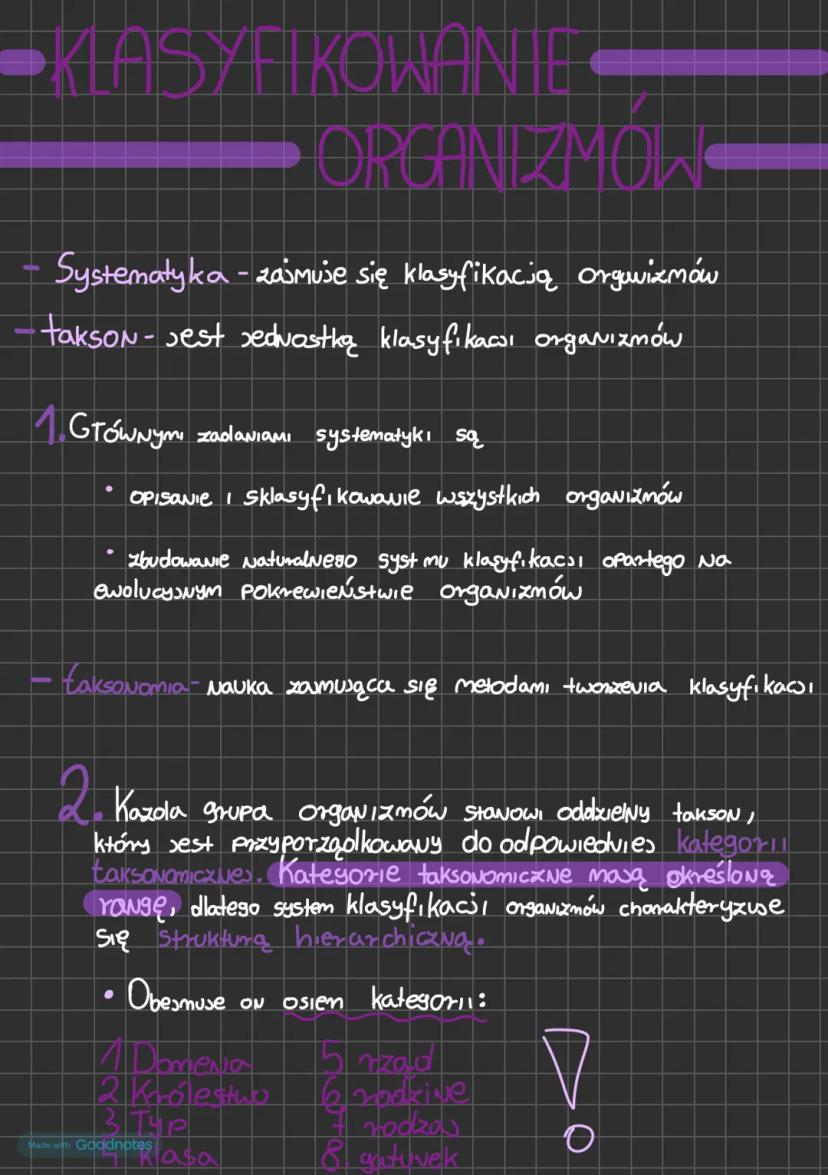 KLASYFIKOWANIE
ORGANIZMÓW
- Systematyka - zajmuje się klasyfikacją organizmów
- takson - jest jednostką klasyfikacji organizmów
1. Głównymi zadaniami systematyki są
• opisanie i sklasyfikowanie wszystkich organizmów
• zbudowanie naturalnego syst mu klasyfikacji opartego na
ewolucyjnym pokrewieństwie organizmów
- taksonomia - nauka zamująca się metodami tworzenia klasyfikacji
2. Każda grupa organizmów stanowi oddzielny takson,
który jest przyporządkowany do odpowiedniej kategorii
taksonomicznej. Kategorie taksonomiczne mają określoną
rangę, dlatego system klasyfikacji organizmów charakteryzuje
się strukturą hierarchiczną.
• Obejmuje on osiem kategorii:
1 Domena 5 rząd
2 Królestwo 6 rodzine
3 Typ 7 rodzaj
4 klasa 8. gatunek
!
Made with Goodnotes